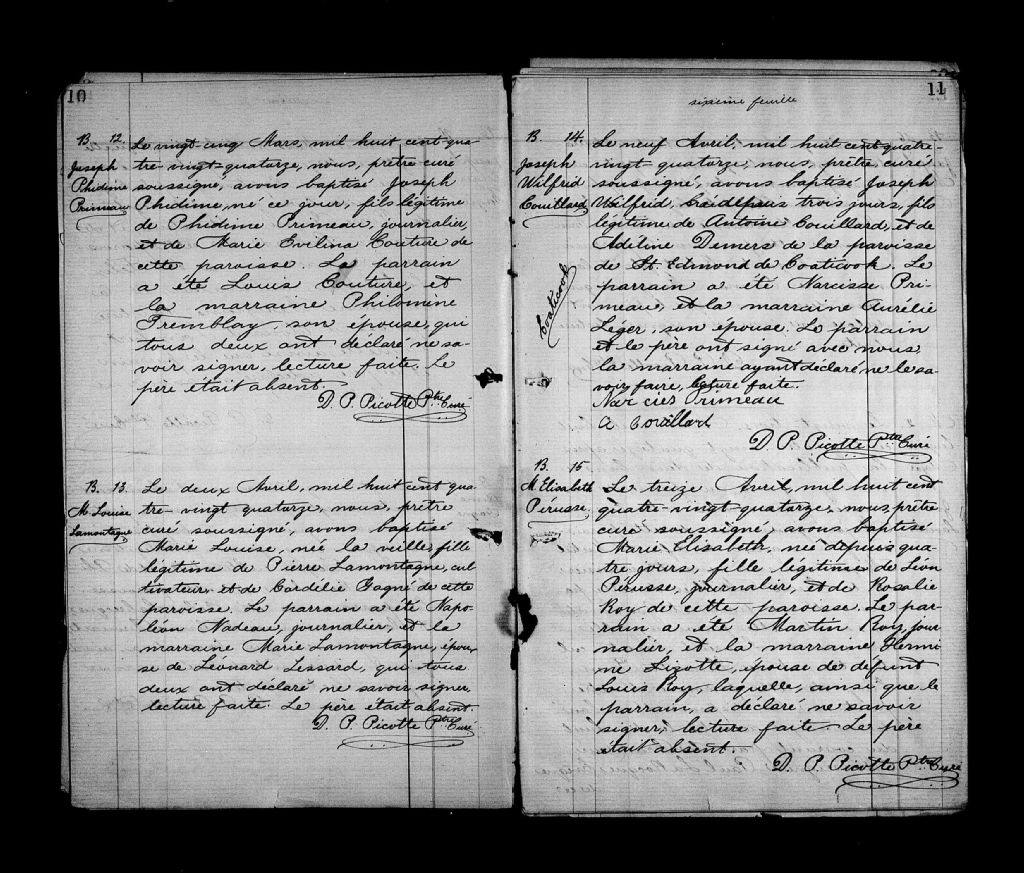 10
B. 12.
Joseph
Phidime
Primeau
Le vingt-cinq Mars, mil huit cent qua-
tre-vingt-quatorze, nous, prêtre curé
soussigné, avons baptisé Joseph
Phidime, né ce jour, fils légitime
de Phidime Primeau, journalier,
et de Marie Evilina Couture de
cette paroisse. Le parrain
a été Louis Couture, et
la marraine Philomine
Tremblay, son épouse, qui
tous deux ont déclaré ne sa-
voir signer, lecture faite. Le
père était absent.
D. P. Picotte Ptre Curé
B. 13.
M. Louise
Lamontagne
Le deux Avril, mil huit cent qua-
tre-vingt quatorze, nous, prêtre
curé soussigné, avons baptisé
Marie Louise, née la veille, fille
légitime de Pierre Lamontagne, cul-
tivateur, et de Cordélie Gagné de cette
paroisse. Le parrain a été Napo-
léon Nadeau, journalier, et la
marraine Marie Lamontagne, épou-
se de Léonard Lessard, qui tous
deux ont déclaré ne savoir signer,
lecture faite. Le père était absent.
D. P. Picotte Ptre Curé
11
sixième feuille
B. 14.
Joseph
Wilfrid
Couillard
Coaticook
Le neuf Avril, mil huit cent quatre-
vingt quatorze, nous, prêtre, curé
soussigné, avons baptisé Joseph
Wilfrid, depuis trois jours, fils
légitime de Antoine Couillard, et de
Adéline Demers de la paroisse
de St. Edmond de Coaticook. Le
parrain a été Narcisse Pri-
meau, et la marraine Aurélie
Leger, son épouse. Le parrain
et le père ont signé avec nous,
la marraine ayant déclaré ne le sa-
voir faire, lecture faite.
Nar cies Primeau
A Couillard
D. P. Picotte Ptre Curé
B. 15.
M. Elisabeth
Pérusse
Le treize Avril, mil huit cent
quatre-vingt-quatorze, nous, prêtre
curé soussigné, avons baptisé
Marie Elisabeth, née depuis qua-
tre jours, fille légitime de Léon
Pérusse, journalier, et de Rosalie
Roy de cette paroisse. Le par-
rain a été Martin Roy, jour-
nalier, et la marraine Hermi-
ne Lizotte, épouse de defunt
Louis Roy, laquelle, ainsi que le
parrain, a déclaré ne savoir
signer, lecture faite. Le père
était absent.
D. P. Picotte Ptre Curé